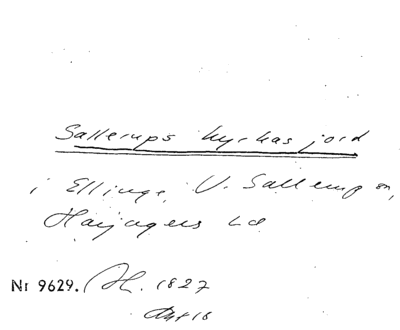 Sallerups kyrkas jord
i Ellinge, V. Sallerup sn,
Harjagers hd
Nr 9629. H. 1827